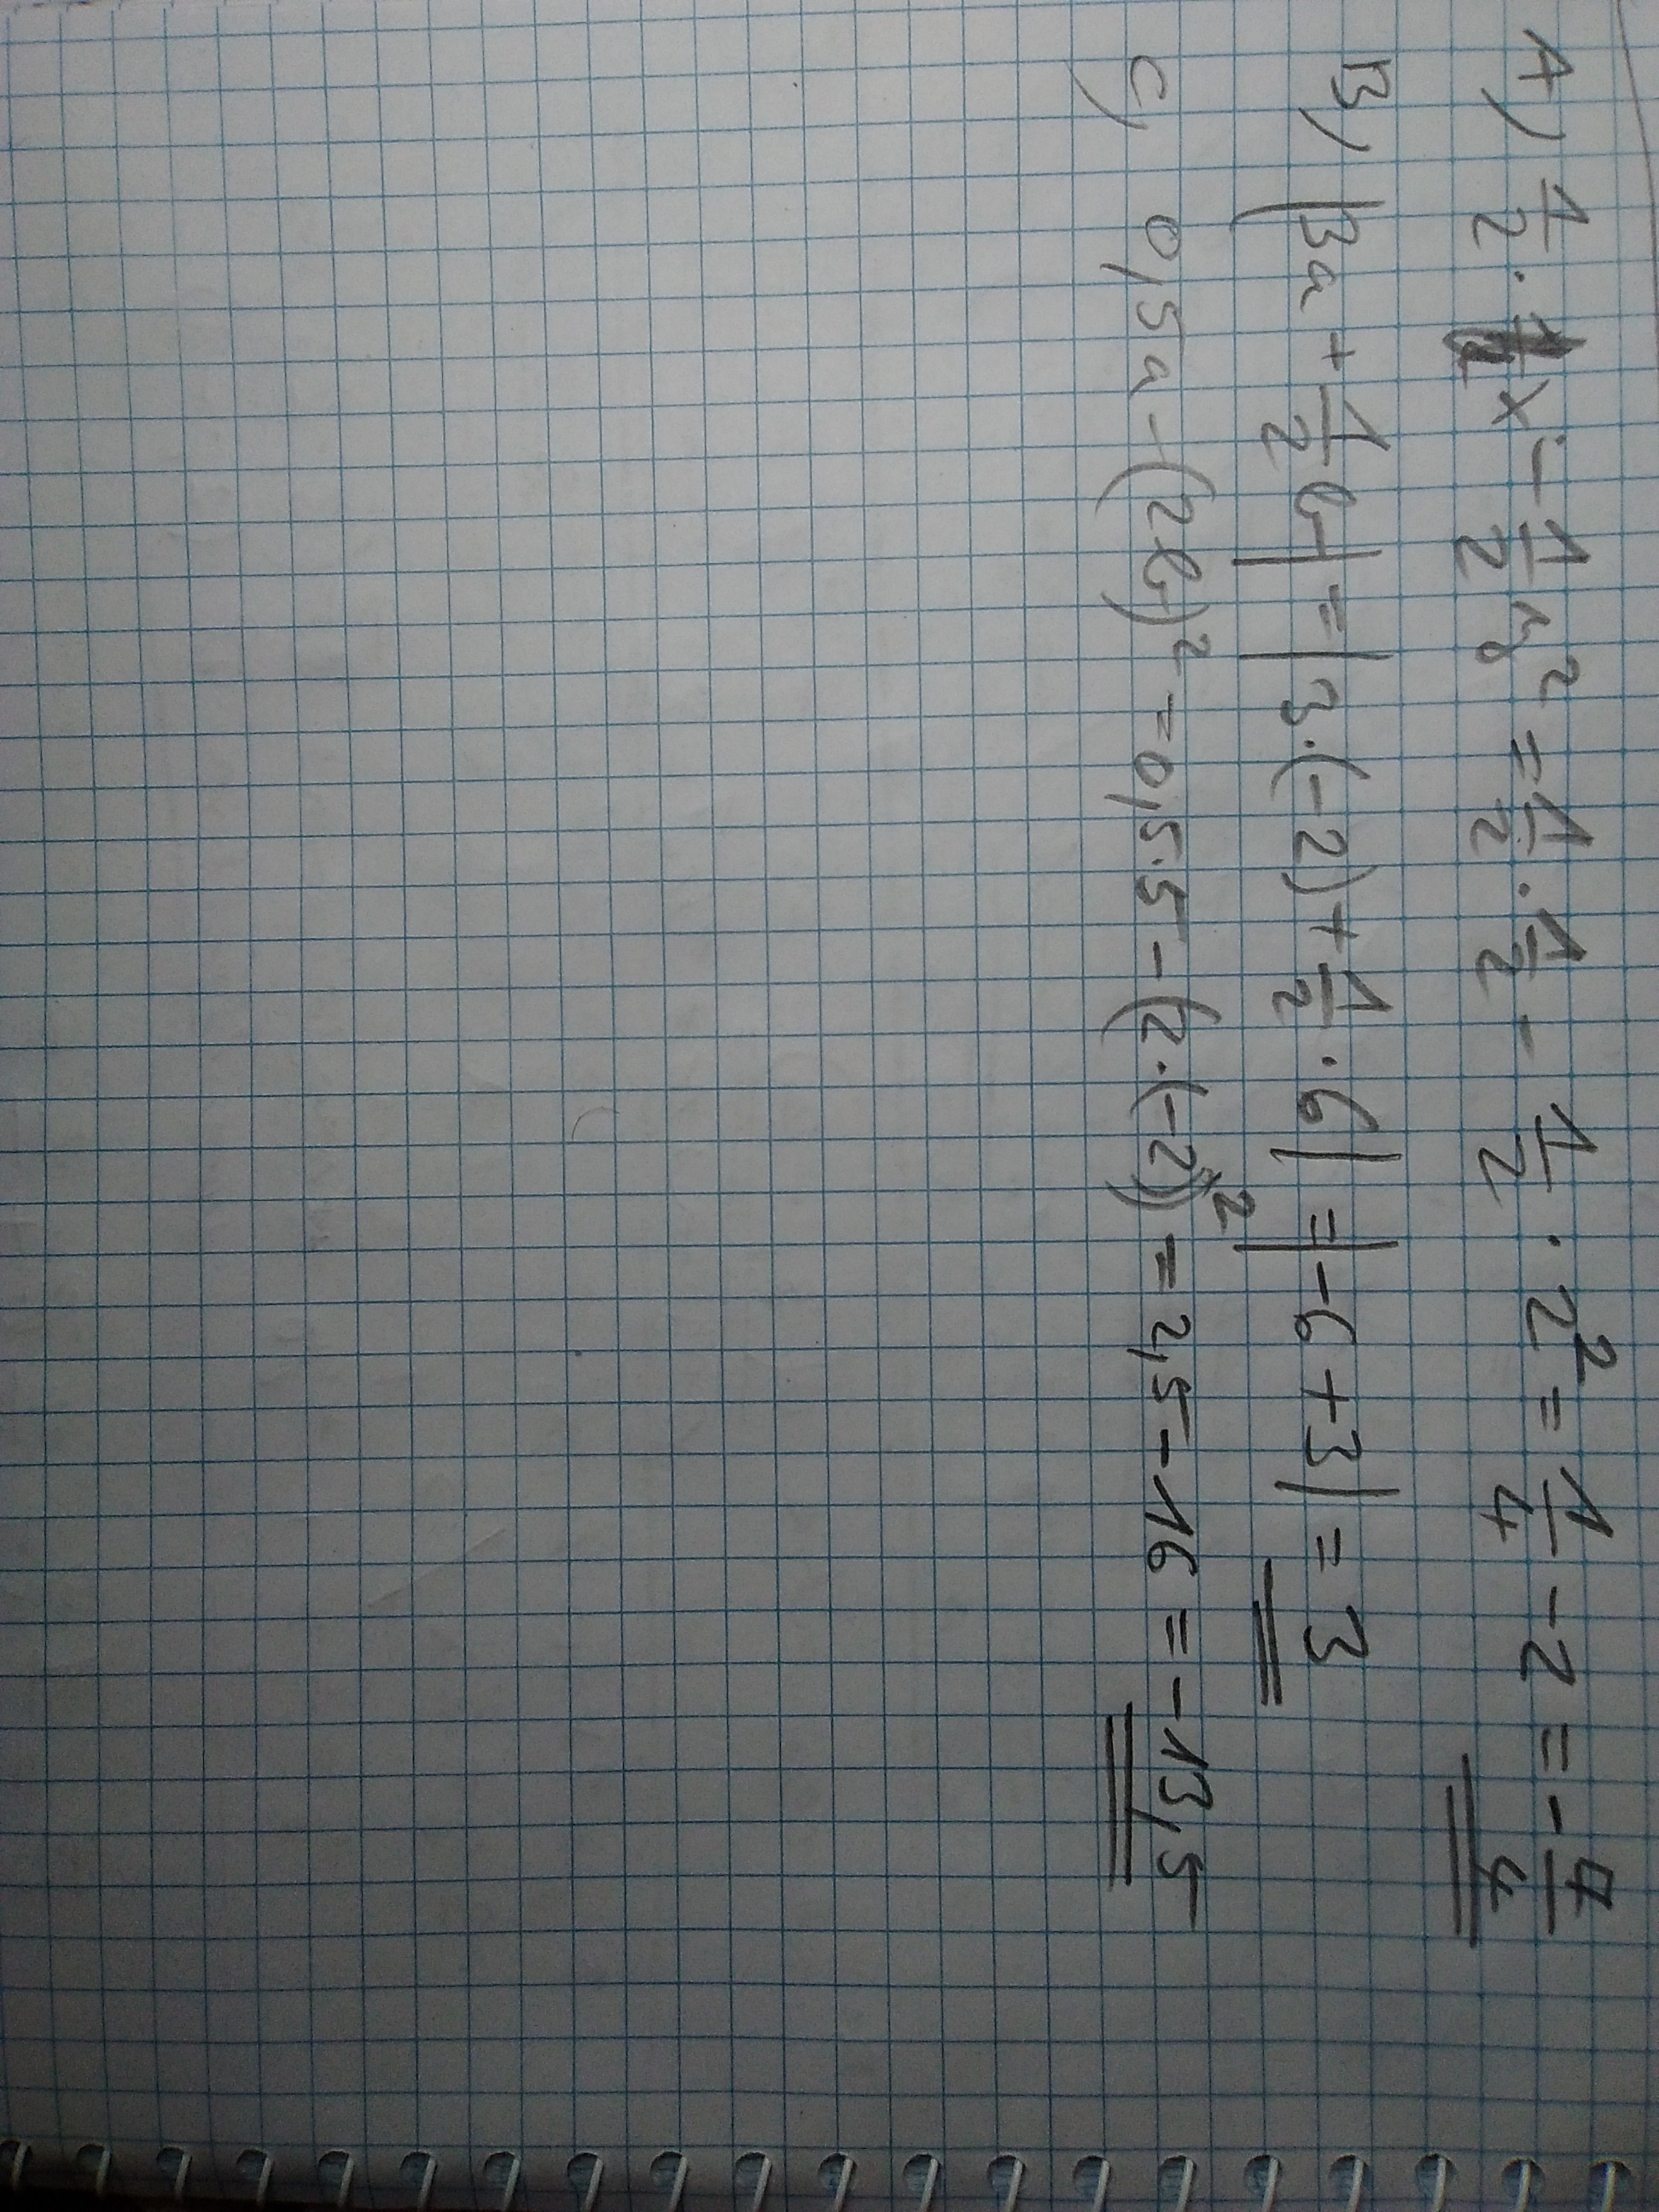 A) 1/2 · x - 1/2 y² = 1/2 · 1/2 - 1/2 · 2² = 1/4 - 2 = - 7/4
B) |3a + 1/2 b| = |3·(-2) + 1/2 · 6| = |-6+3| = 3
C) 0,5a - (2b)² = 0,5·5 - (2·(-2))² = 2,5 - 16 = -13,5